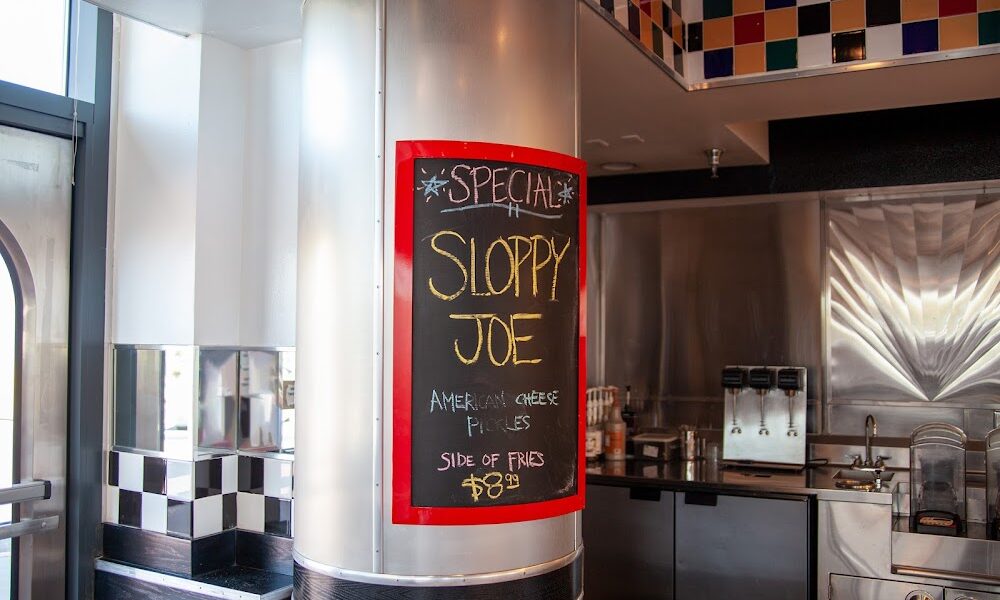 SPECIAL
SLOPPY
JOE
AMERICAN CHEESE
PICKLES
SIDE OF FRIES
$8.99